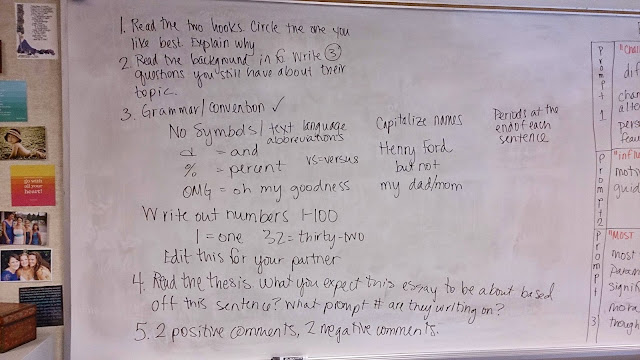 1. Read the two hooks. Circle the one you
like best. Explain why
2. Read the background info. Write 3
questions you still have about their
topic.
3. Grammar/convention ✓
No Symbols/text language
abbreviations
& = and
% = percent vs=versus
OMG = oh my goodness
Capitalize names
Henry Ford
but not
my dad/mom
Periods at the
end of each
sentence
Write out numbers 1-100
1 = one 32 = thirty-two
Edit this for your partner
4. Read the thesis. What you expect this essay to be about based
off this sentence? What prompt # are they writing on?
5. 2 positive comments, 2 negative comments.
go with
all your
heart!
Prompt 1
Prompt 2
guid
Prompt 3
"Most
most
signif